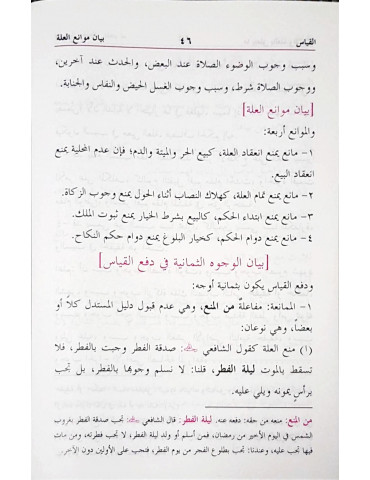 القياس ٤٦ بيان موانع العلة
وسبب وجوب الوضوء الصلاة عند البعض، والحدث عند آخرين،
ووجوب الصلاة شرط، وسبب وجوب الغسل الحيض والنفاس والجنابة.
[بيان موانع العلة]
والموانع أربعة:
١- مانع يمنع انعقاد العلة، كبيع الحر والميتة والدم؛ فإن عدم المحلية يمنع
انعقاد البيع.
٢- مانع يمنع تمام العلة، كهلاك النصاب أثناء الحول يمنع وجوب الزكاة.
٣- مانع يمنع ابتداء الحكم، كالبيع بشرط الخيار يمنع ثبوت الملك.
٤- مانع يمنع دوام الحكم، كخيار البلوغ يمنع دوام حكم النكاح.
[بيان الوجوه الثمانية في دفع القياس]
ودفع القياس يكون بثمانية أوجه:
١- الممانعة: مفاعلةٌ من المنع، وهي عدم قبول دليل المستدل كلاً أو
بعضاً، وهي نوعان:
(١) منع العلة كقول الشافعي: صدقة الفطر وجبت بالفطر، فلا
تسقط بالموت ليلة الفطر، قلنا: لا نسلم وجوبها بالفطر، بل تجب
برأسٍ يمونه ويلي عليه.
من المنع: منعه من حقه: دفعه عنه. ليلة الفطر: قال الشافعي: تجب صدقة الفطر بغروب
الشمس في اليوم الأخير من رمضان، فمن أسلم أو ولد ليلة الفطر، لا تجب فطرته، ومن مات
فيها تجب عليه، وعندنا: تجب بطلوع الفجر من يوم الفطر، فتجب على الأولين دون الآخر.